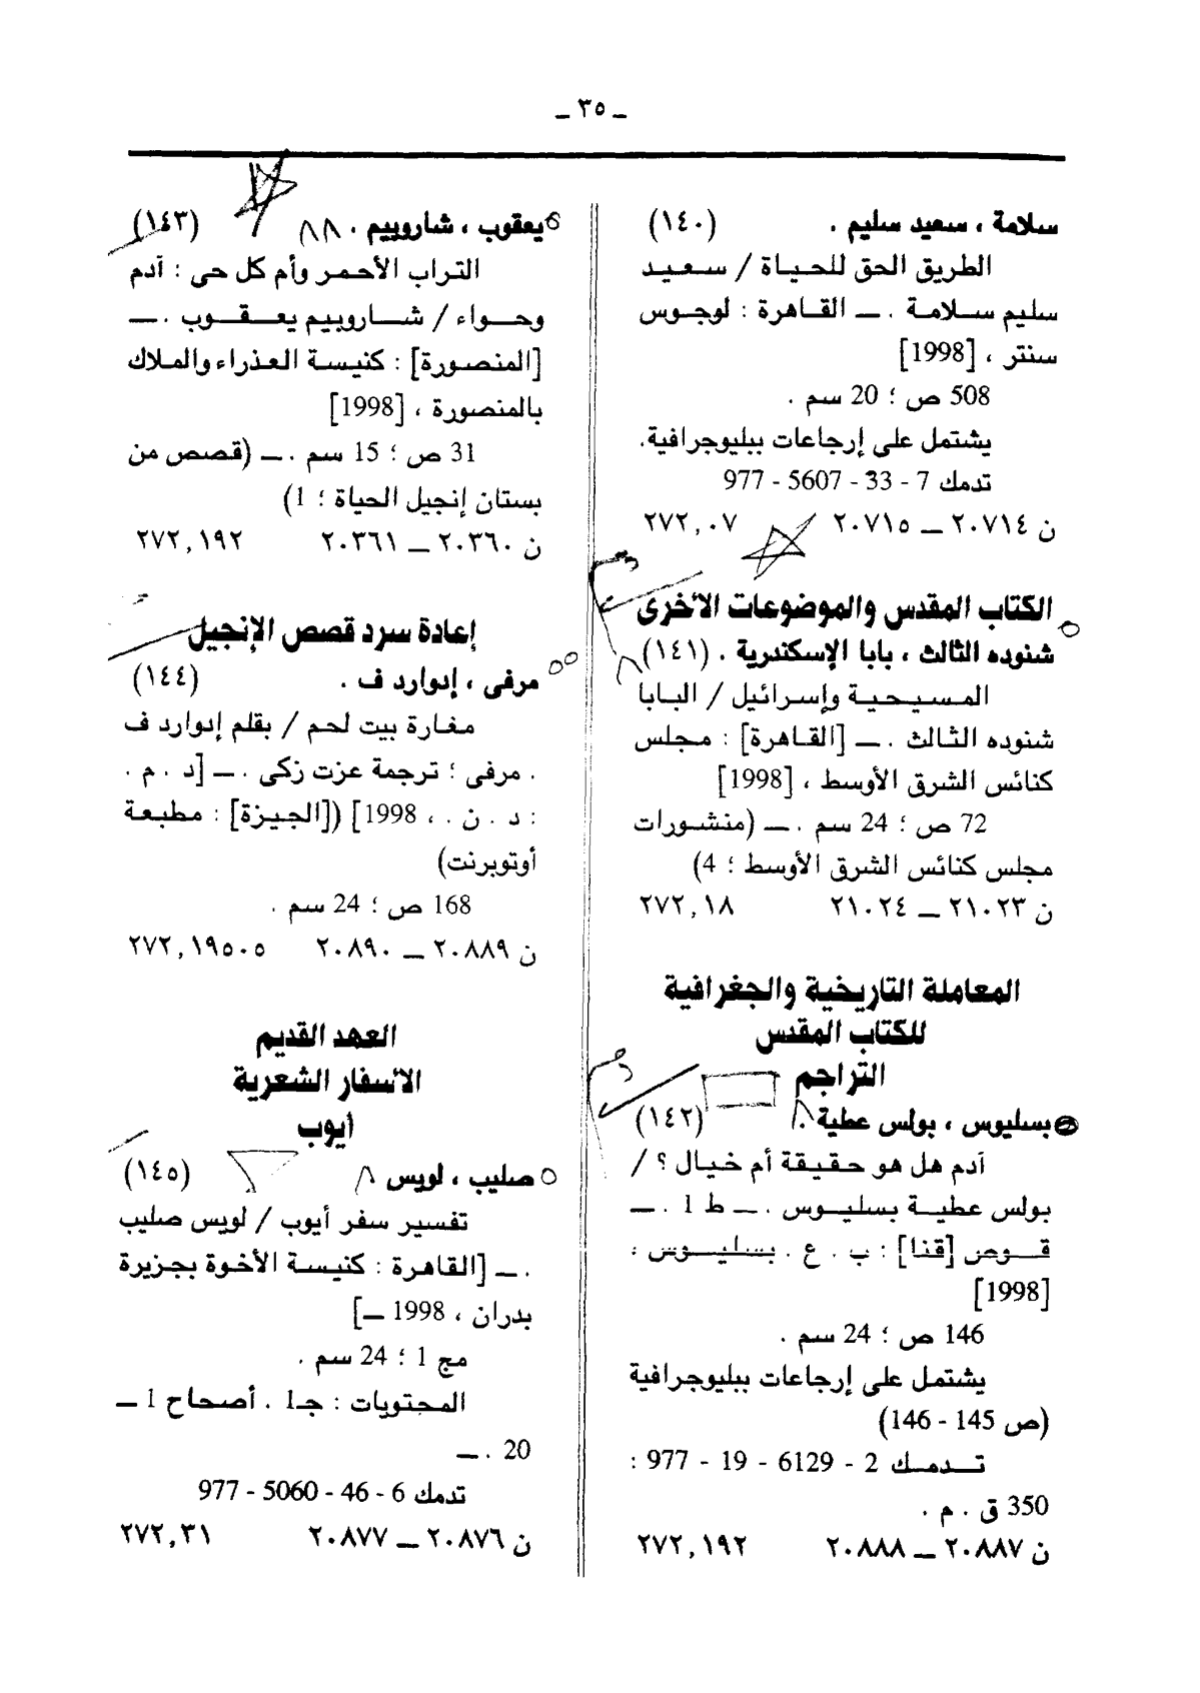 ـ ٣٥ ـ
سلامة ، سعيد سليم . (١٤٠)
الطريق الحق للحياة / سعيد
سليم سلامة . ـ القاهرة : لوجوس
سنتر ، [1998]
508 ص ؛ 20 سم .
يشتمل على إرجاعات ببليوجرافية.
تدمك 7 - 33 - 5607 - 977
ن ٢٠٧١٤ ـ ٢٠٧١٥ ٢٧٢,٠٧
الكتاب المقدس والموضوعات الأخرى
شنوده الثالث ، بابا الإسكندرية . (١٤١)
المسيحية وإسرائيل / البابا
شنوده الثالث . ـ [القاهرة] : مجلس
كنائس الشرق الأوسط ، [1998]
72 ص ؛ 24 سم . ـ (منشورات
مجلس كنائس الشرق الأوسط ؛ 4)
ن ٢١٠٢٣ ـ ٢١٠٢٤ ٢٧٢,١٨
المعاملة التاريخية والجغرافية
للكتاب المقدس
التراجم
بسليوس ، بولس عطية . (١٤٢)
آدم هل هو حقيقة أم خيال ؟ /
بولس عطية بسليوس . ـ ط 1 . ـ
قوص [قنا] : ب . ع . بسليوس ،
[1998]
146 ص ؛ 24 سم .
يشتمل على إرجاعات ببليوجرافية
(ص 145 - 146)
تدمك 2 - 6129 - 19 - 977 :
350 ق . م .
ن ٢٠٨٨٧ ـ ٢٠٨٨٨ ٢٧٢,١٩٢
يعقوب ، شاروبيم . ٨٨ (١٤٣)
التراب الأحمر وأم كل حى : آدم
وحواء / شاروبيم يعقوب . ـ
[المنصورة] : كنيسة العذراء والملاك
بالمنصورة ، [1998]
31 ص ؛ 15 سم . ـ (قصص من
بستان إنجيل الحياة ؛ 1)
ن ٢٠٣٦٠ ـ ٢٠٣٦١ ٢٧٢,١٩٢
إعادة سرد قصص الإنجيل
مرفى ، إدوارد ف . (١٤٤)
مغارة بيت لحم / بقلم إدوارد ف
. مرفى ؛ ترجمة عزت زكى . ـ [د . م .
: د . ن . ، 1998] ([الجيزة] : مطبعة
أوتوبرنت)
168 ص ؛ 24 سم .
ن ٢٠٨٨٩ ـ ٢٠٨٩٠ ٢٧٢,١٩٥٠٥
العهد القديم
الأسفار الشعرية
أيوب
صليب ، لويس ٨ (١٤٥)
تفسير سفر أيوب / لويس صليب
. ـ [القاهرة : كنيسة الأخوة بجزيرة
بدران ، 1998 ـ]
مج 1 ؛ 24 سم .
المحتويات : جـ1 . أصحاح 1 ـ
20 . ـ
تدمك 6 - 46 - 5060 - 977
ن ٢٠٨٧٦ ـ ٢٠٨٧٧ ٢٧٢,٣١